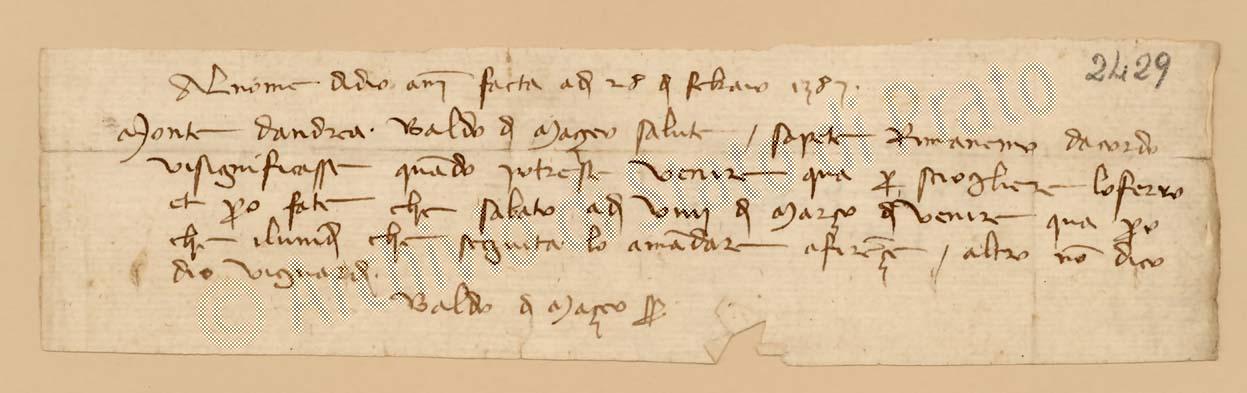 2429
Al nome didio amē facta adi 28 di febraio 1387.
Monte dandrea. Baldo di Mazeo salute / sapete Rimanemo dacordo
visignificasse quādo potresse venire qua p sciogliere loferro
et po fate che sabato adi viiii di Março di venire qua po
che ilunidi che seguita lo amādare afirēçe / altro nō dico
dio viguardi.
Baldo di Mazeo p
© Archivio di Stato di Prato